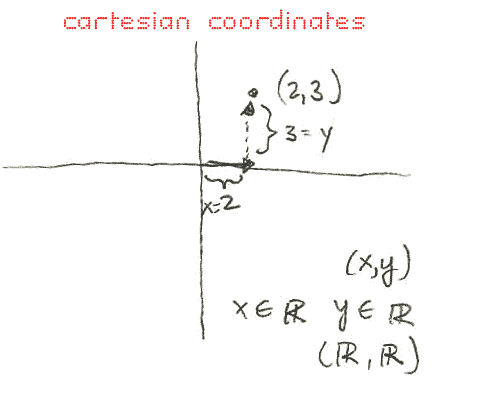 cartesian coordinates
(2,3)
3=y
x=2
(x,y)
x∈ℝ y∈ℝ
(ℝ,ℝ)